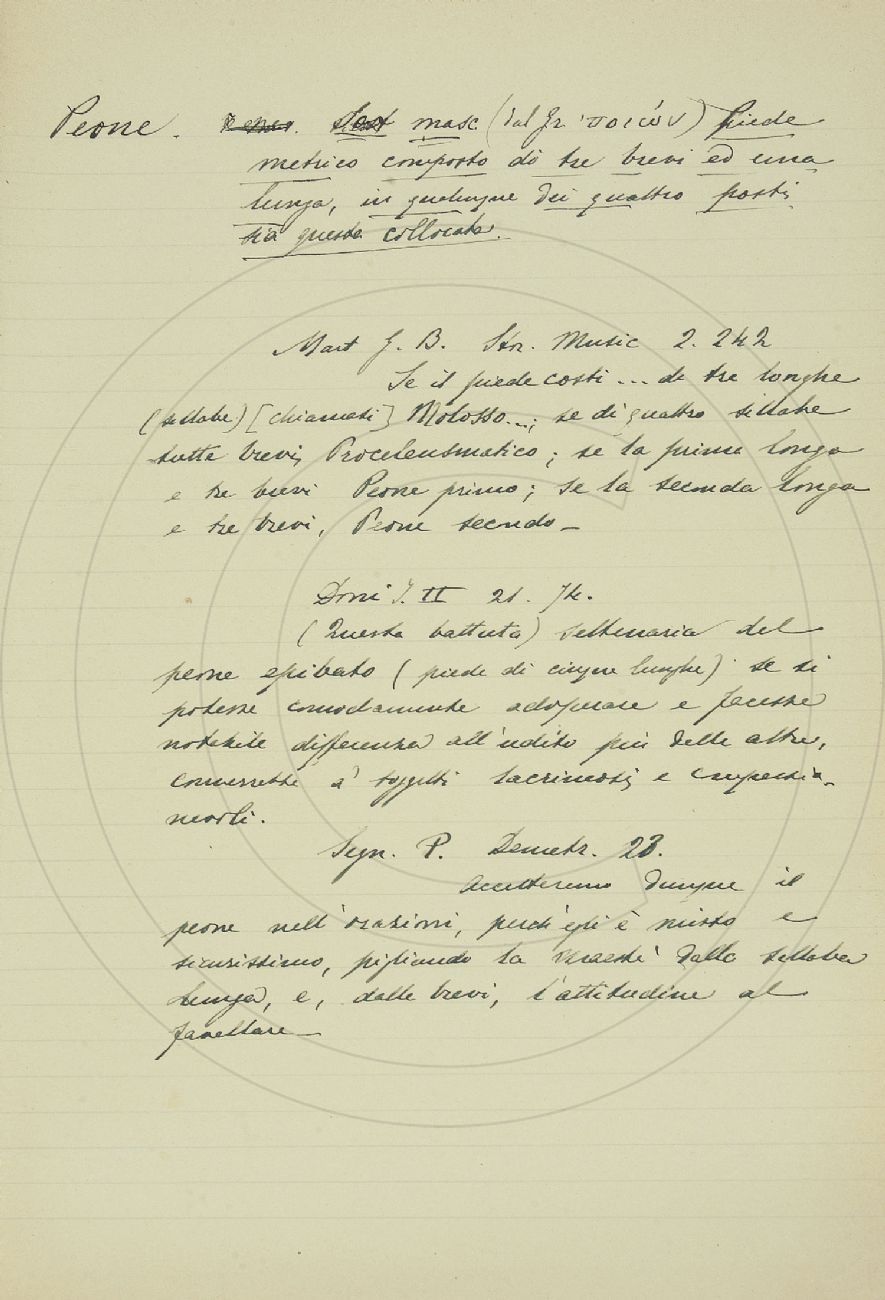 Peone. masc (dal gr. παιών) piede
metrico composto di tre brevi ed una
lunga, in qualunque dei quattro posti
sia questa collocata.
Mart G. B. Stor. Music 2. 242
Se il piede costi ... di tre longhe
(sillabe) [chiamasi] Molosso...; se di quattro sillabe
tutte brevi, Proceleusmatico; se la prima longa
e tre brevi Peone primo; se la seconda longa
e tre brevi, Peone secondo_
Doni T. II 21. 74.
(Questa battuta) settenaria del
peone epibato (piede di cinque lunghe) se si
potesse comodamente adoperare e facesse
notabile differenza all'udito più delle altre,
converrebbe a' soggetti lacrimosi, e compassio-
nevoli.
Segn. P. Demetr. 28.
Accetteremo dunque il
peone nell'orazioni, perch'egli è misto e
sicurissimo, pigliando la maestà dalla sillaba
lunga, e, dalle brevi, l'attitudine al
favellare_